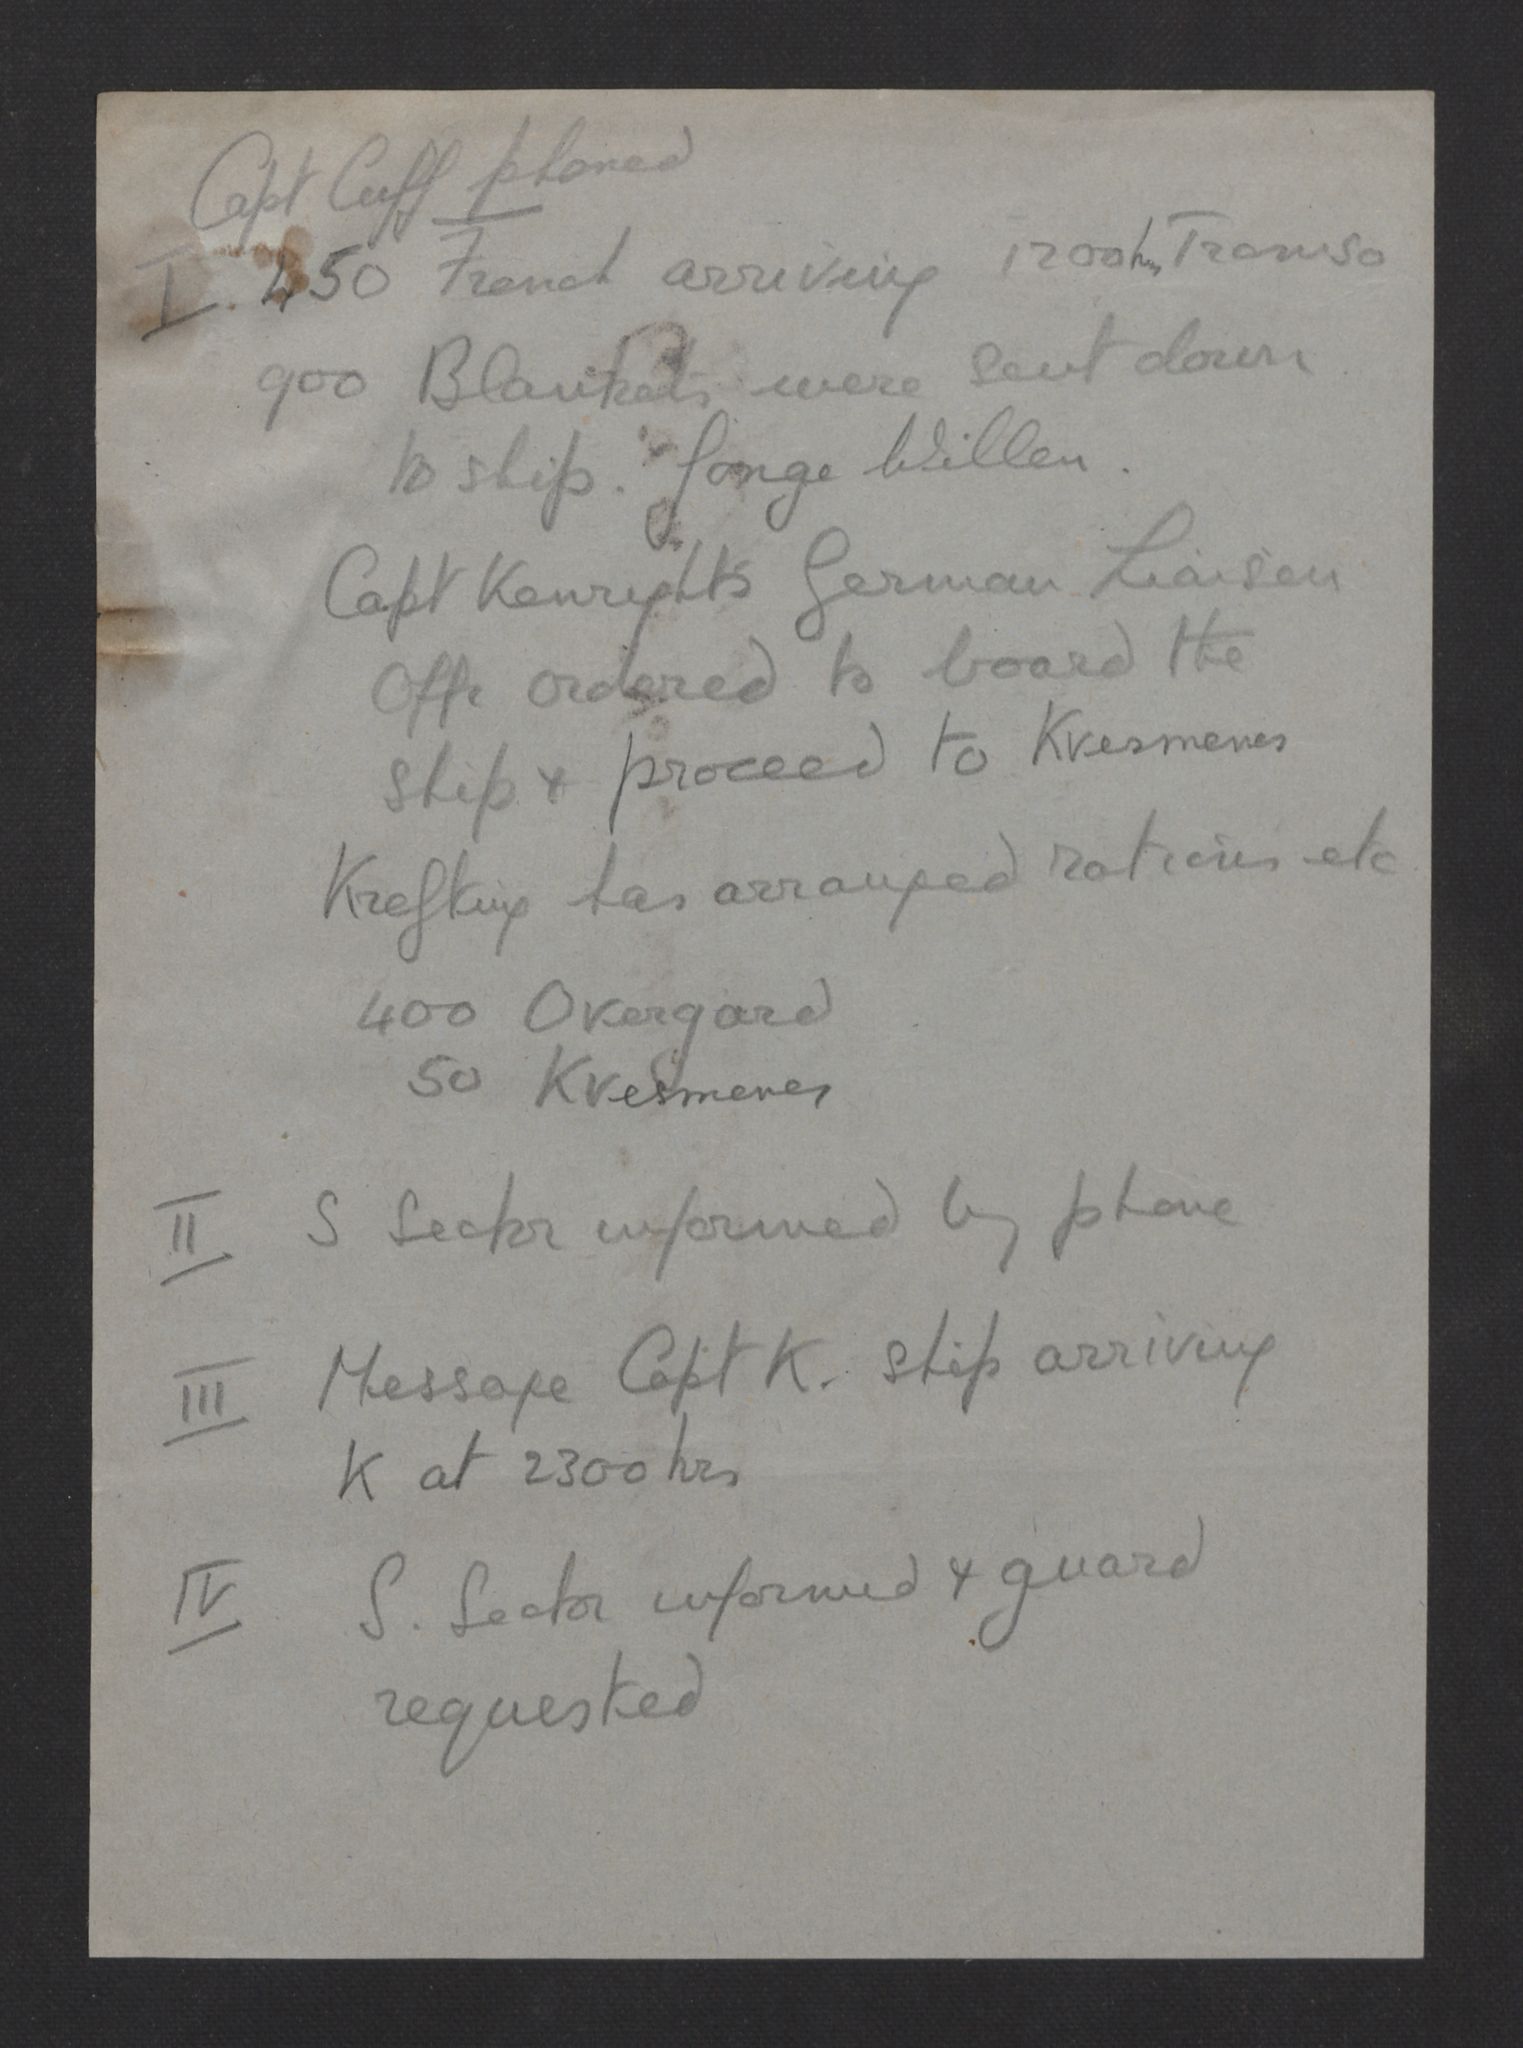 Capt Cuff phoned
I. 450 French arriving 1200hrs Tromso
900 Blankets were sent down
to ship. Jonge Willem.
Capt Kenrights German Liaison
Offr ordered to board the
ship & proceed to Kvesmenes
Krefting has arranged rations etc
400 Overgard
50 Kvesmenes
II S Sector informed by phone
III Message Capt K. ship arriving
K at 2300 hrs
IV S. Sector informed & guard
requested